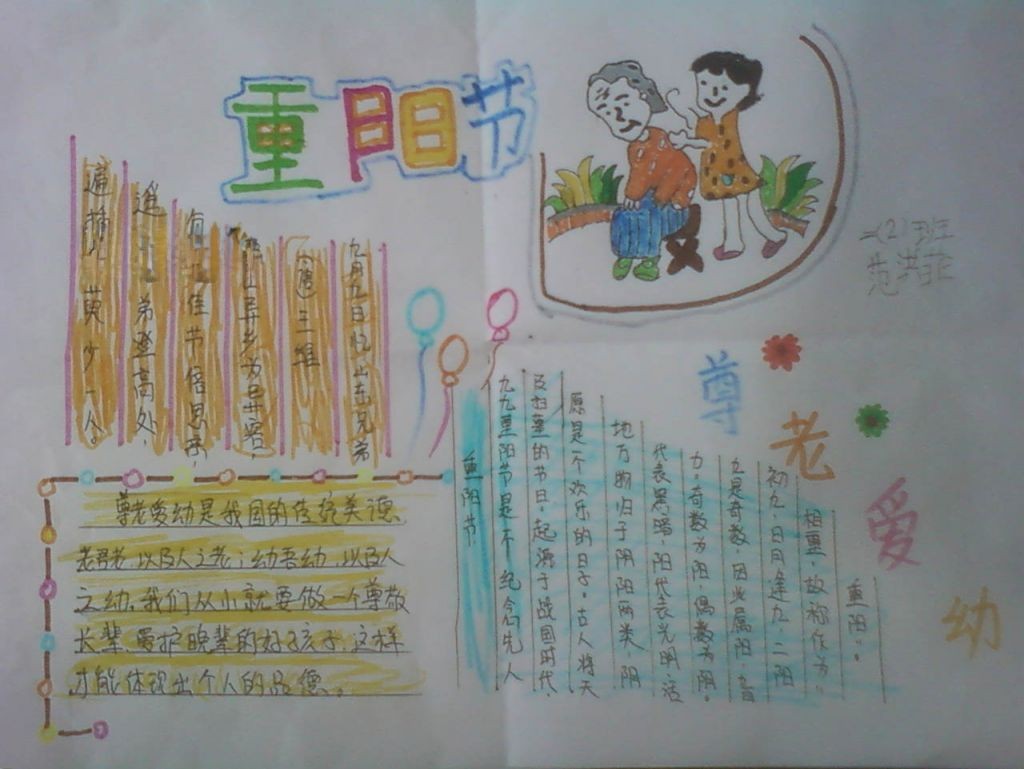 重阳节
一(2)班
九月九日忆山东兄弟
(唐)三维
异乡为异客,
佳节倍思亲,
遥 弟登高处,
遍插 萸少一人。
尊老爱幼
尊老爱幼是我国的传统美德
老吾老,以及人之老;幼吾幼,以及人
之幼。我们从小就要做一个尊敬
长辈,爱护晚辈的好孩子,这样
才能体现出个人的品德。
重阳节
九九重阳节是 纪念先人
及扫墓的节日,起源于战国时代,
原是一个欢乐的日子。古人将天
地万物归于阴阳两类 阴
代表黑暗,阳代表光明、活
力。奇数为阳,偶数为阴。
九是奇数,因此属阳,
初九,日月逢九,二阳
相重,故称作为“
重阳”。